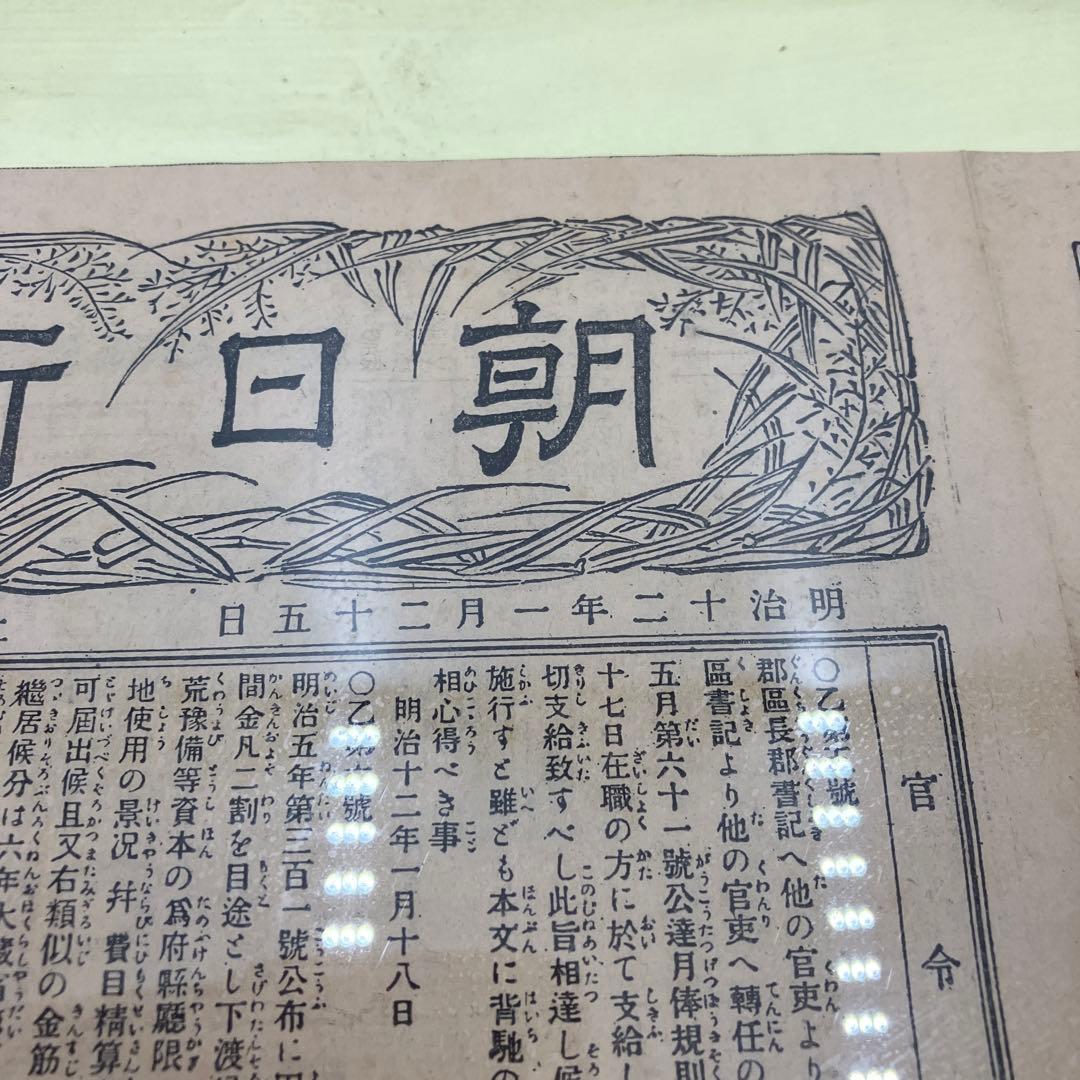 朝日新
明治十二年一月二十五日
官令
〇乙第 號
郡區長郡書記へ他の官吏より
區書記より他の官吏へ轉任の
五月第六十一號公達月俸規則
十七日在職の方に於て支給し
切支給致すべし此旨相達し候
施行すと雖ども本文に背馳の
相心得べき事
明治十二年一月十八日
〇乙第 號
明治五年第三百一號公布に
間金凡二割を目途とし下渡
荒豫備等資本の爲府縣廳限
地使用の景况幷費目精算
可屆出候且又右類似の金筋
繼居候分は六年大藏省